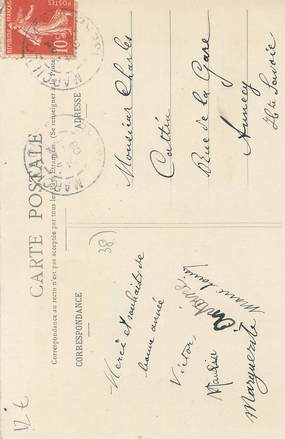 CARTE POSTALE
Correspondance au recto n'est pas acceptée par tous les pays Étrangers. (Se renseigner à la Poste)
CORRESPONDANCE
ADRESSE
RÉPUBLIQUE FRANÇAISE
POSTES
10
(38)
Merci et souhaits de
bonne année
Victor
Antoine
Marie Louise
Maurice
Marguerite
Monsieur Charles
Cottin
Rue de la Gare
Annecy
Hte Savoie
12 €